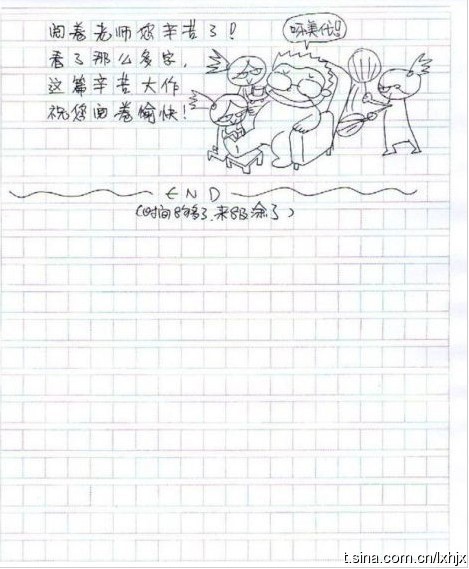 阅卷老师您辛苦了!
呀美代!!
看了那么多字,
这篇辛苦大作
祝您阅卷愉快!
END
(时间8够了.来8及涂了)
t.sina.com.cn/lxhjx